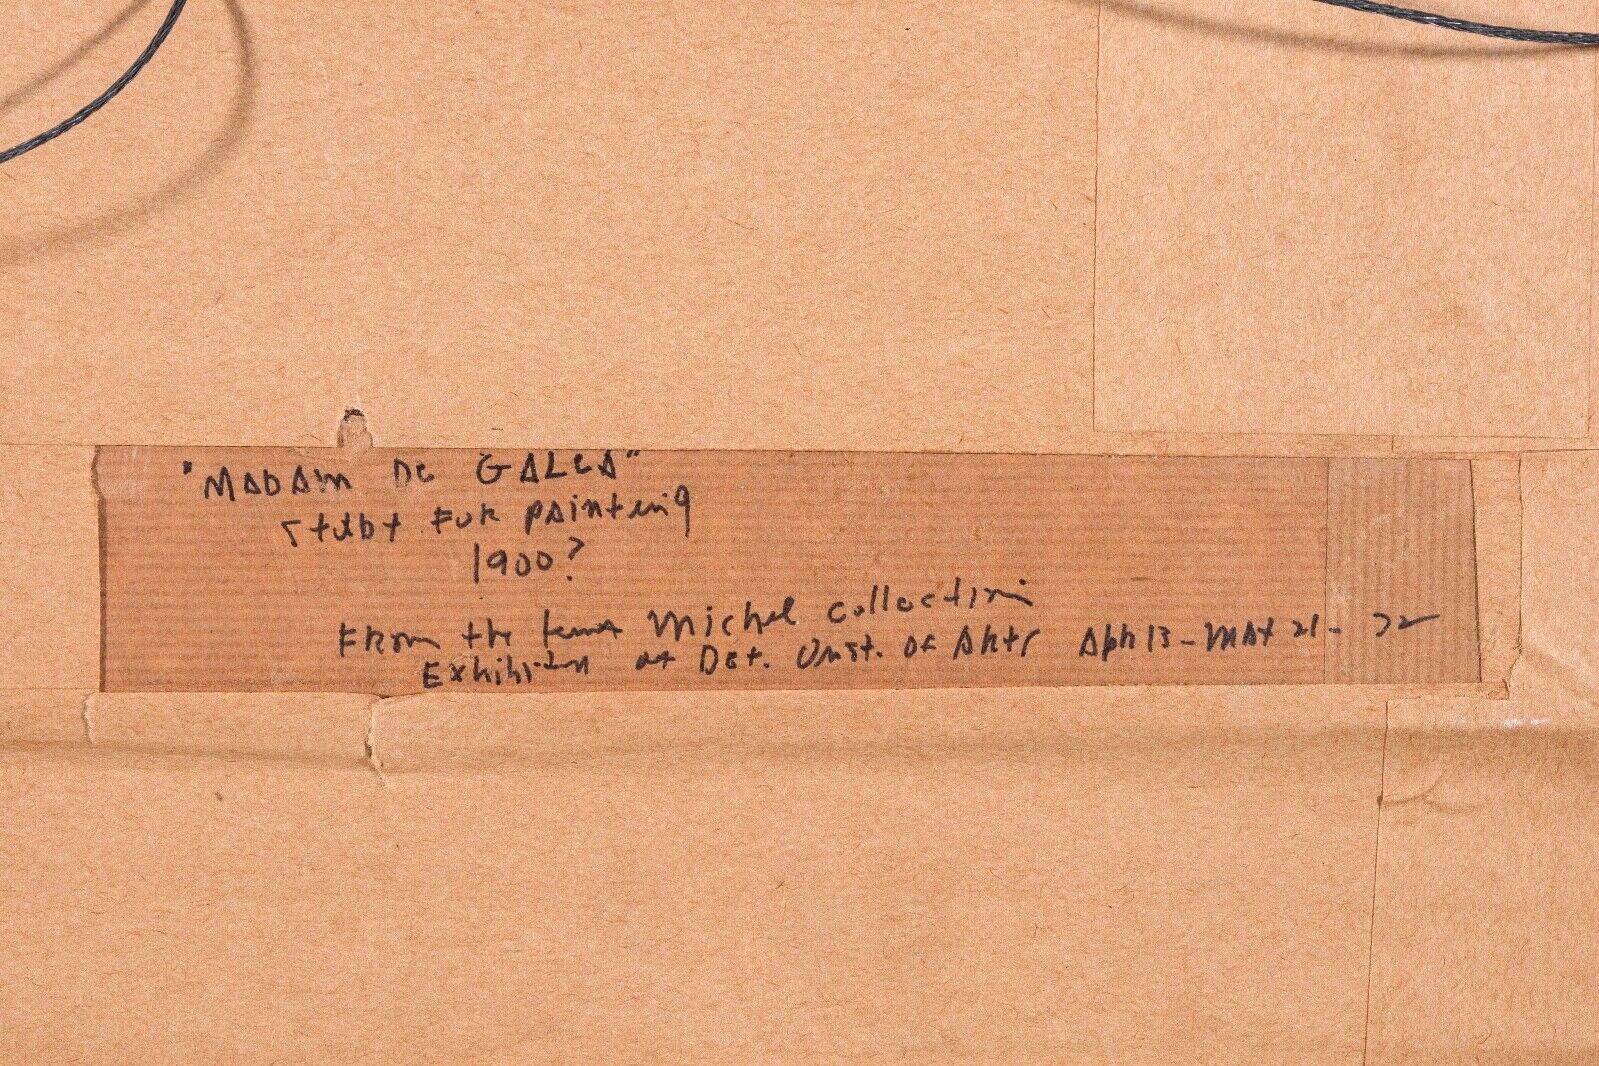 "MADAM DE GALEA"
STUDY FOR PAINTING
1900?
FROM the Michel collection
Exhibition at Det. Inst. of Arts Apr 13 - MAY 21 - 72